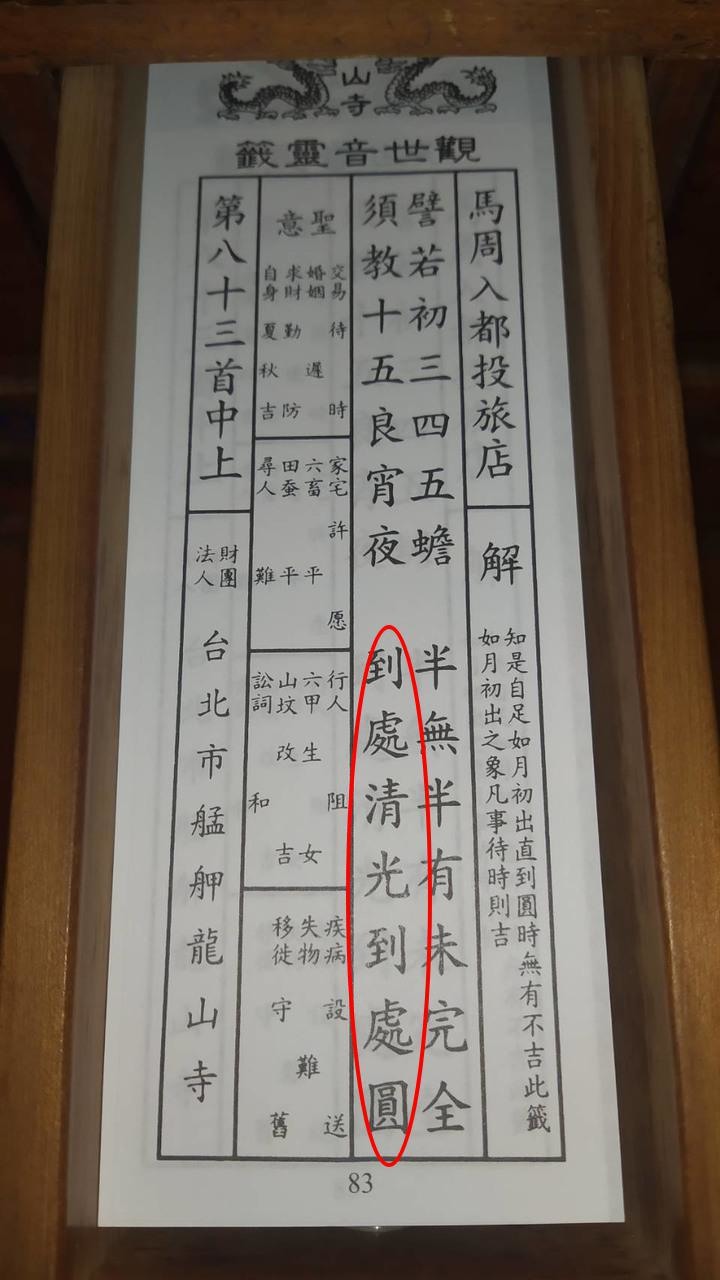 山寺
觀世音靈籤
馬周入都投旅店
解
知是自足如月初出直到圓時無有不吉此籤
如月初出之象凡事待時則吉
譬若初三四五蟾 半無半有未完全
須教十五良宵夜 到處清光到處圓
聖意
交易待時
婚姻遲
求財勤防
自身夏秋吉
家宅許愿
六畜平
田蚕平
尋人難
行人阻
六甲生女
山坟改吉
訟詞和
疾病設送
失物難
移徙守舊
第八十三首中上
財團
法人
台北市艋舺龍山寺
83